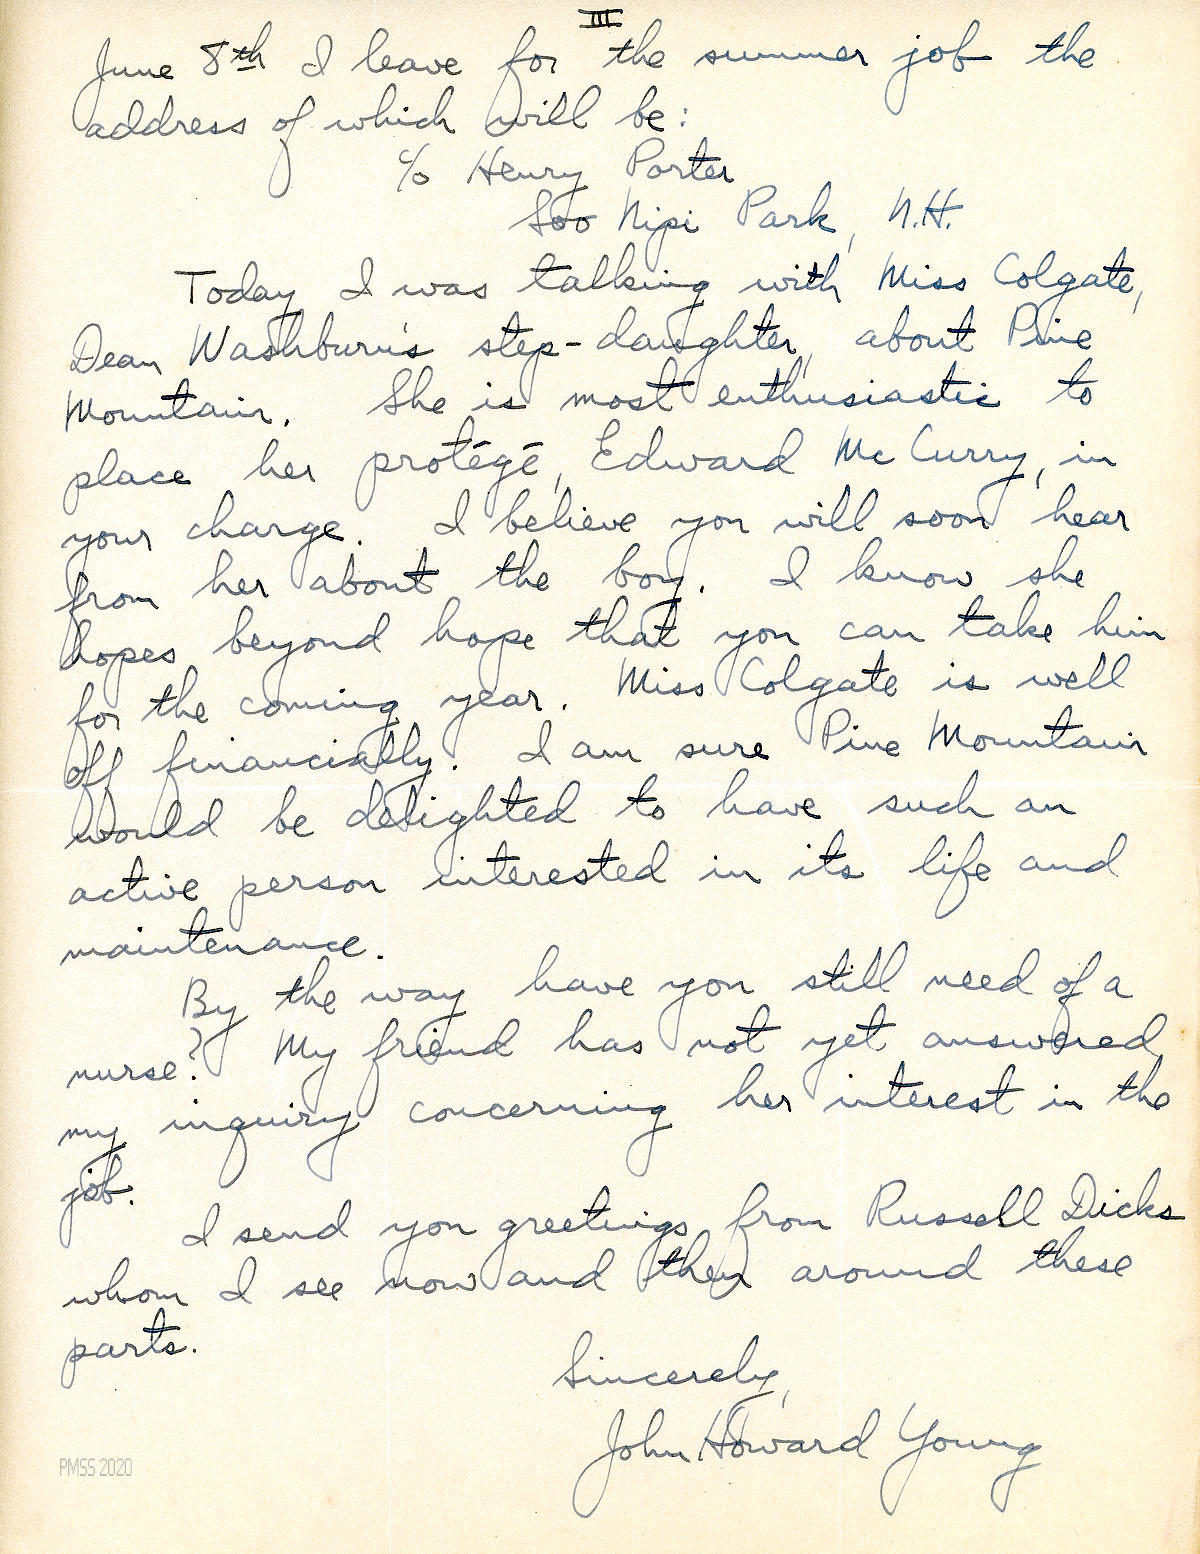 III
June 8th I leave for the summer job the
address of which will be:
c/o Henry Porter
Soo Nipi Park, N.H.
Today I was talking with Miss Colgate,
Dean Washburn's step-daughter, about Pine
Mountain. She is most enthusiastic to
place her protégé, Edward McCurry, in
your charge. I believe you will soon hear
from her about the boy. I know she
hopes beyond hope that you can take him
for the coming year. Miss Colgate is well
off financially. I am sure Pine Mountain
would be delighted to have such an
active person interested in its life and
maintenance.
By the way have you still need of a
nurse? My friend has not yet answered
my inquiry concerning her interest in the
job.
I send you greetings from Russell Dicks
whom I see now and then around these
parts.
Sincerely,
John Howard Young
PMSS 2020